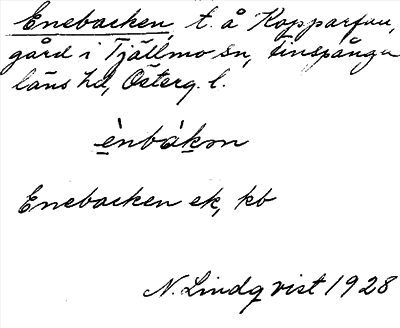 Enebacken, t. å Kopparfau,
gård i Tjällmo sn, Finspånga
läns hd, Österg. l.
ènbákon
Enebacken ek, kb
N. Lindqvist 1928